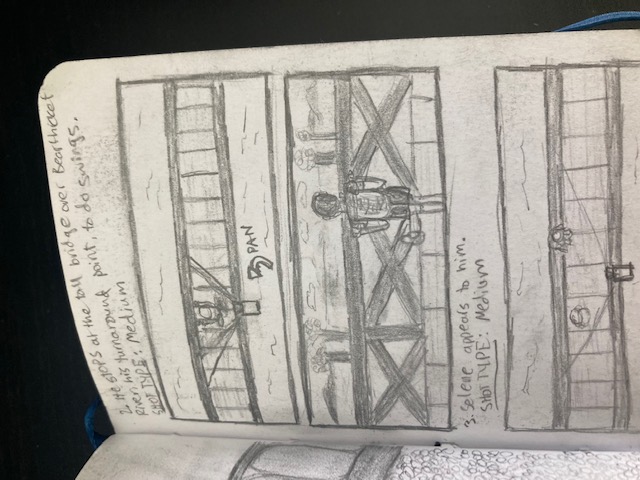 2. He STOPS at the tall bridge over Bearthicket
River, his turnaround point, to do swings.
SHOT TYPE: Medium
PAN
3. Selene appears to him.
SHOT TYPE: Medium